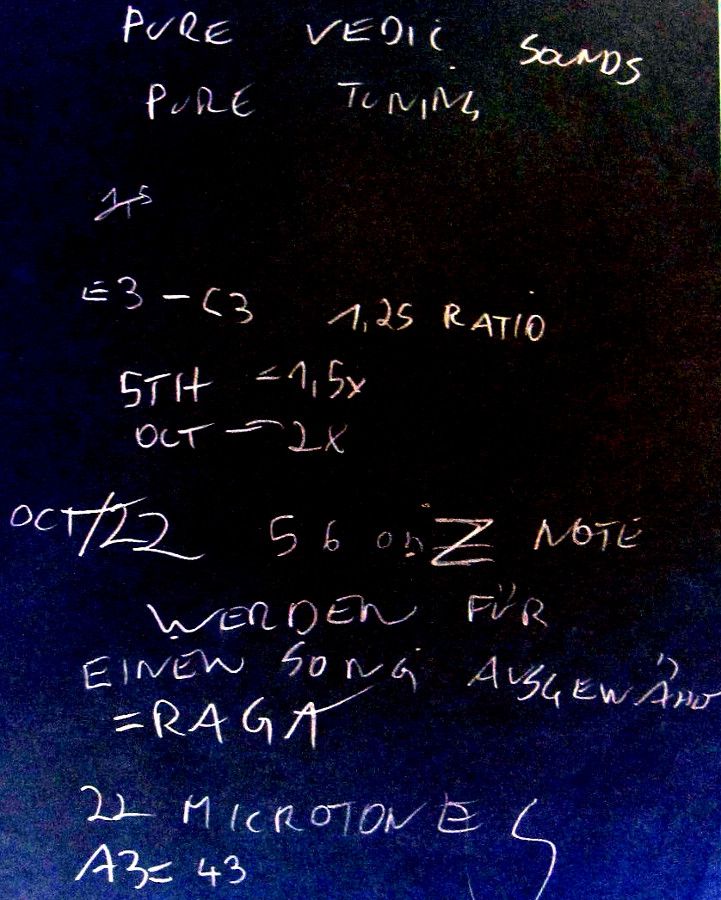 PURE VEDIC SOUNDS
PURE TUNING
E3 - C3 1,25 RATIO
5TH = 1,5x
OCT - 2X
OCT/22 5 6 NOTE
WERDEN FÜR
EINEN SONG
=RAGA
22 MICROTONE S
A3= 43